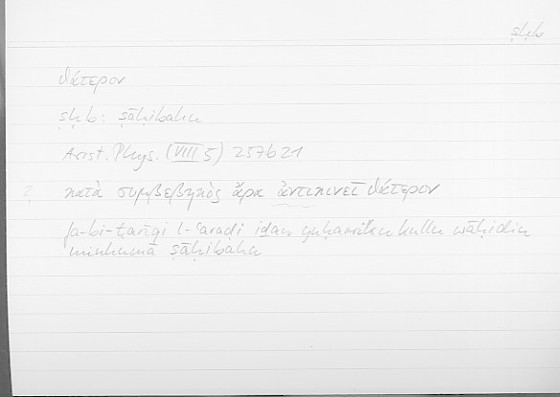 ṣḥb
θάτερον
ṣḥb: ṣāḥibahu
Arist. Phys. (VIII 5) 257b21
2 κατὰ συμβεβηκὸς ἄρα ἀντικινεῖ θάτερον
fa-bi-ṭarīqi l-ʿaraḍi iḏan yuḥarriku kullu wāḥidin
minhumā ṣāḥibahu